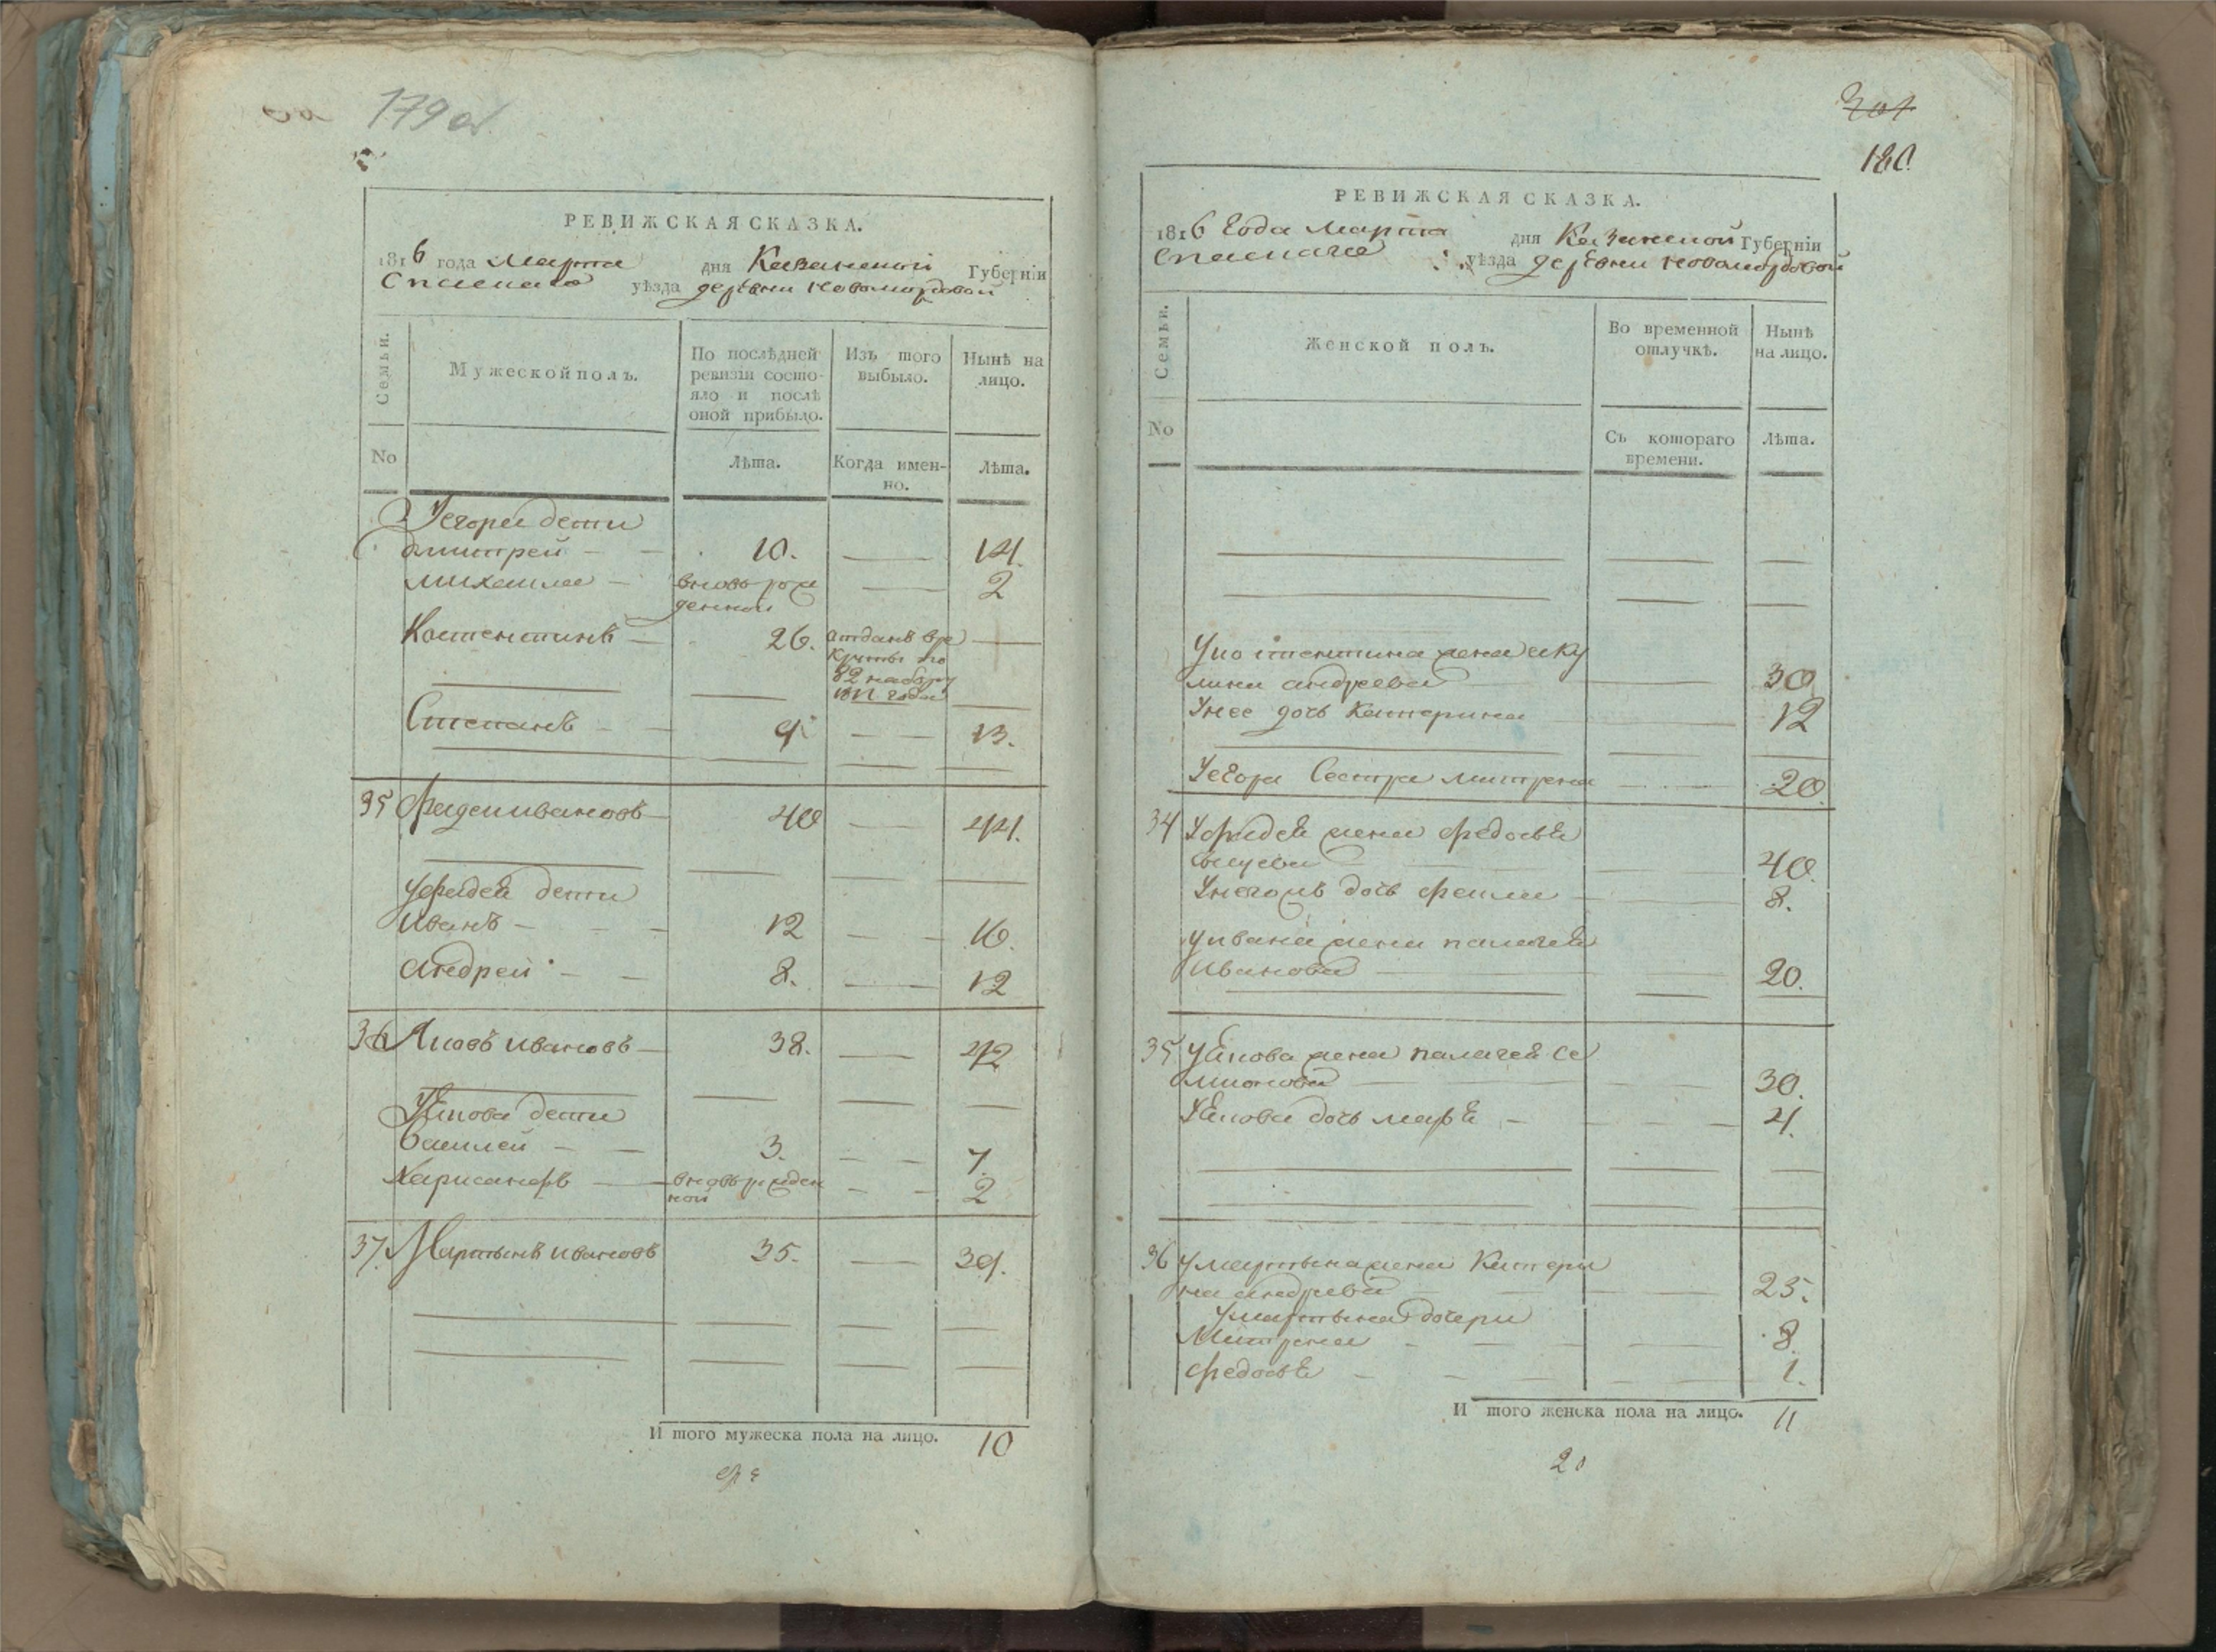 179 об
РЕВИЖСКАЯ СКАЗКА.
1816 года Марта дня Казанской Губерніи
Спаскаго уѣзда деревни Новомордовой
Семьи.
Мужеской полъ.
По послѣдней ревизіи состо-
яло и послѣ
оной прибыло.
Изъ того
выбыло.
Нынѣ на
лицо.
No
Лѣта.
Когда имен-
но.
Лѣта.
Уегора дети
дмитрей 10. 14.
михаила вновь рож
денной 2
Костентинъ 26. отданъ вре
круты по
82 набору
1812 года
Степанъ 9 13.
35 Фадей ивановъ 40 44.
уфадея дети
иванъ 12 16.
андрей 8. 12
36 Яковъ ивановъ 38. 42
Уякова дети
василей 3. 7.
Харисанфъ вновь рожден
ной 2
37. Мартынъ ивановъ 35. 39.
И того мужеска пола на лицо. 10
301
180.
РЕВИЖСКАЯ СКАЗКА.
1816 года марта дня Казанской Губерніи
Спаскаго уѣзда деревни новомордовой
Семьи.
Женской полъ.
Во временной
отлучкѣ.
Нынѣ
на лицо.
No
Съ котораго
времени.
Лѣта.
Укостентина жена аку
лина андреева 30
Унее дочь катерина 12
Уегора Сестра митрена 20.
34 Уфадея жена федосья
40.
Унегожъ дочь 8.
уивана жена палагея
иванова 20.
35 уякова жена палагея се
мионова 30.
Уякова дочь марья 4.
36 умартына жена Катери
на андреева 25.
умартына дочери
Митрена 8.
федосья 1.
И того женска пола на лицо. 11